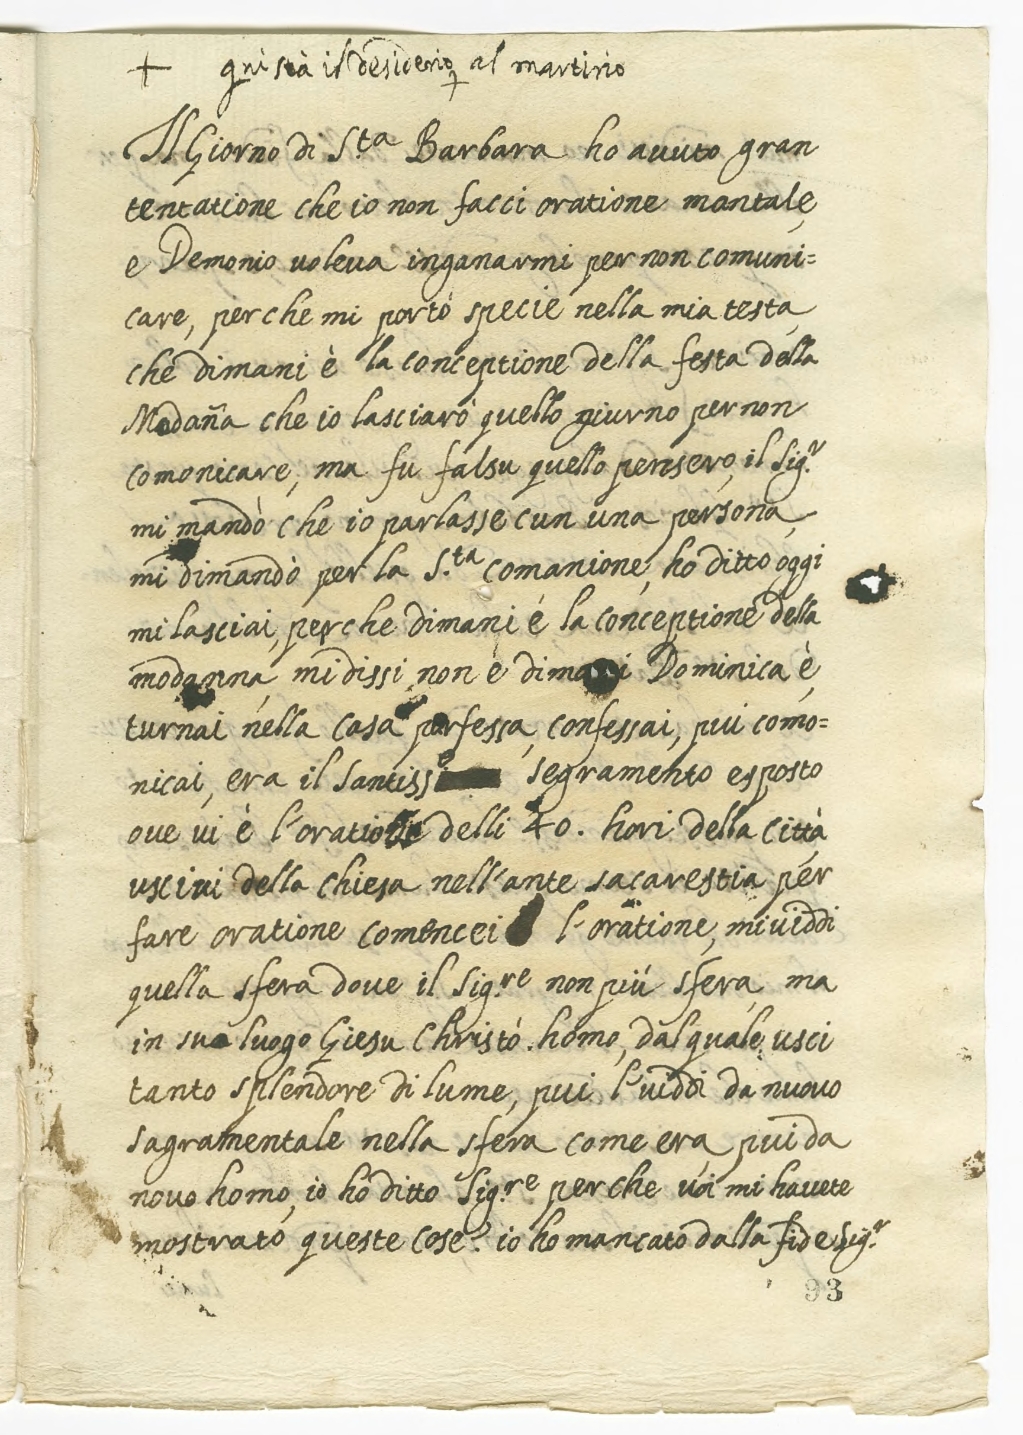 + qui stà il desiderio al martirio
Il Giorno di S.ta Barbara ho auuto gran
tentatione che io non facci oratione mantale,
e Demonio uoleua inganarmi per non comuni=
care, perche mi portò specie nella mia testa,
che dimani è la conceptione della festa della
Madañа che io lasciarò quello giurno per non
comonicare, ma fu falsu quello pensero, il Sig.r
mi mandò che io parlasse cun una persona,
mi dimandò per la S.ta comanione, ho ditto oggi
mi lasciai, perche dimani é la conceptione della
modanna, mi dissi non è dimani Dominica è,
turnai nella casa porfessa, confessai, pui como=
nicai, era il Santissi segramento esposto
oue ui è l'oratione delli 40. hori della città
usciui della chiesa nell'ante sacarestia per
fare oratione comencei l'oratione, mi uiddi
quella sfera doue il Sig.re non piú sfera, ma
in suo luogo Giesu Christo. homo, dal quale usci
tanto splendore di lume, pui l'uiddi da nuouo
sagramentale nella sfera come era pui da
nouo homo, io hò ditto Sig.re perche uoi mi hauete
mostrato queste cose? io ho mancato dalla fide Sig.r
93